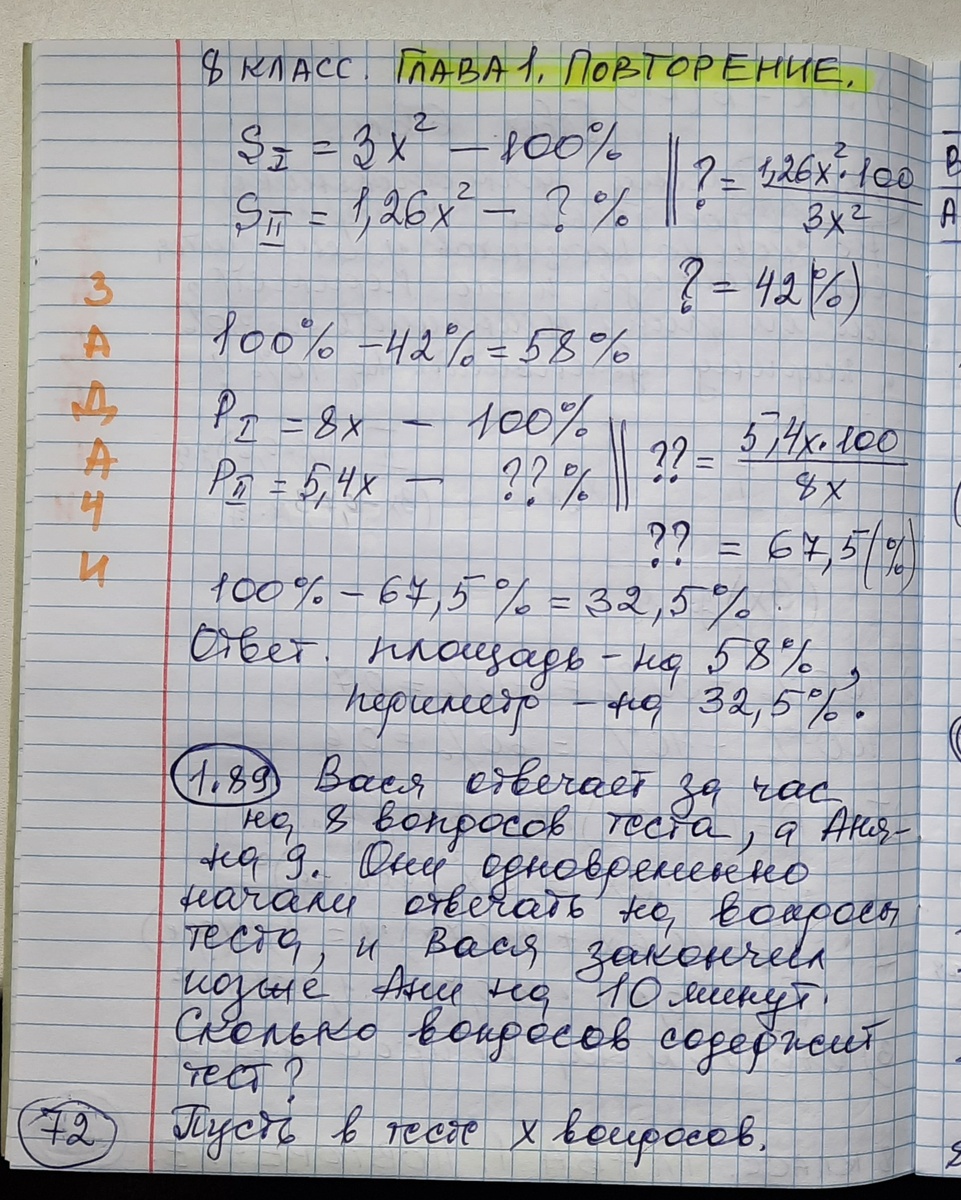 8 КЛАСС. ГЛАВА 1. ПОВТОРЕНИЕ.
S_I = 3x² — 100%
S_II = 1,26x² — ? %
? = 1,26x²·100 / 3x²
? = 42(%)
100% – 42% = 58%
P_I = 8x — 100%
P_II = 5,4x — ?? %
?? = 5,4x·100 / 8x
?? = 67,5(%)
100% – 67,5% = 32,5%.
Ответ. площадь – на 58%,
периметр – на 32,5%.
1.89 Вася отвечает за час
на 8 вопросов теста, а Аня –
на 9. Они одновременно
начали отвечать на вопросы
теста, и Вася закончил
позже Ани на 10 минут.
Сколько вопросов содержит
тест?
Пусть в тесте x вопросов.
ЗАДАЧИ
72
В
А